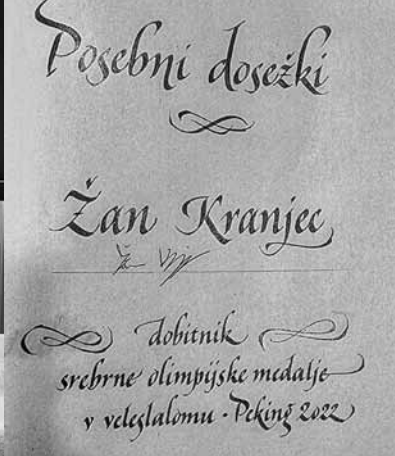 Posebni dosežki
Žan Kranjec
dobitnik
srebrne olimpijske medalje
v veleslalomu - Peking 2022